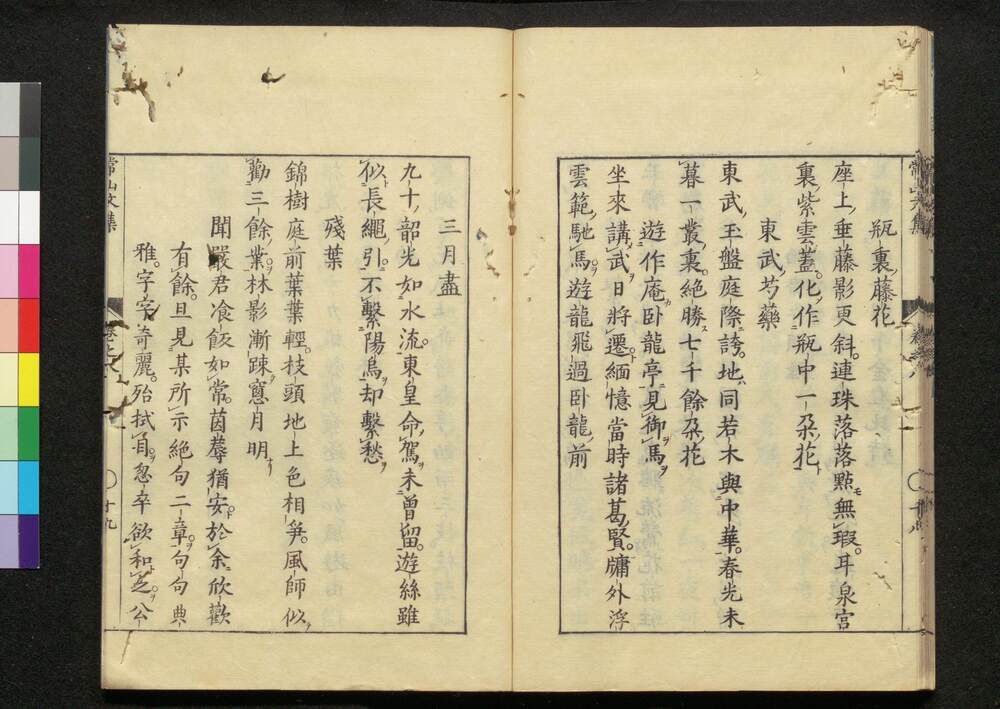 瓶裏藤花
座上垂藤影更斜連珠落落點無瑕耳泉宮
裏紫雲蓋化作瓶中一朶花
東武芍藥
東武玉盤庭際誇地同若木與中華春光未
暮一叢裏絶勝七千餘朶花
遊作庵臥龍亭見御馬
坐來講武日將遷緬憶當時諸葛賢牗外浮
雲範馳馬遊龍飛過臥龍前
三月盡
九十韶光如水流東皇命駕未曾留遊絲雖
似長繩引不繫陽烏却繫愁
殘葉
錦樹庭前葉葉輕枝頭地上色相爭風師似
勸三餘業林影漸踈窻月明
聞嚴君飡飯如常茵蓐猶安於余欣歡
有餘且見某所示絶句二章句句典
雅字字奇麗殆拭目忽卒欲和之公
常山文集
十九
常山文集